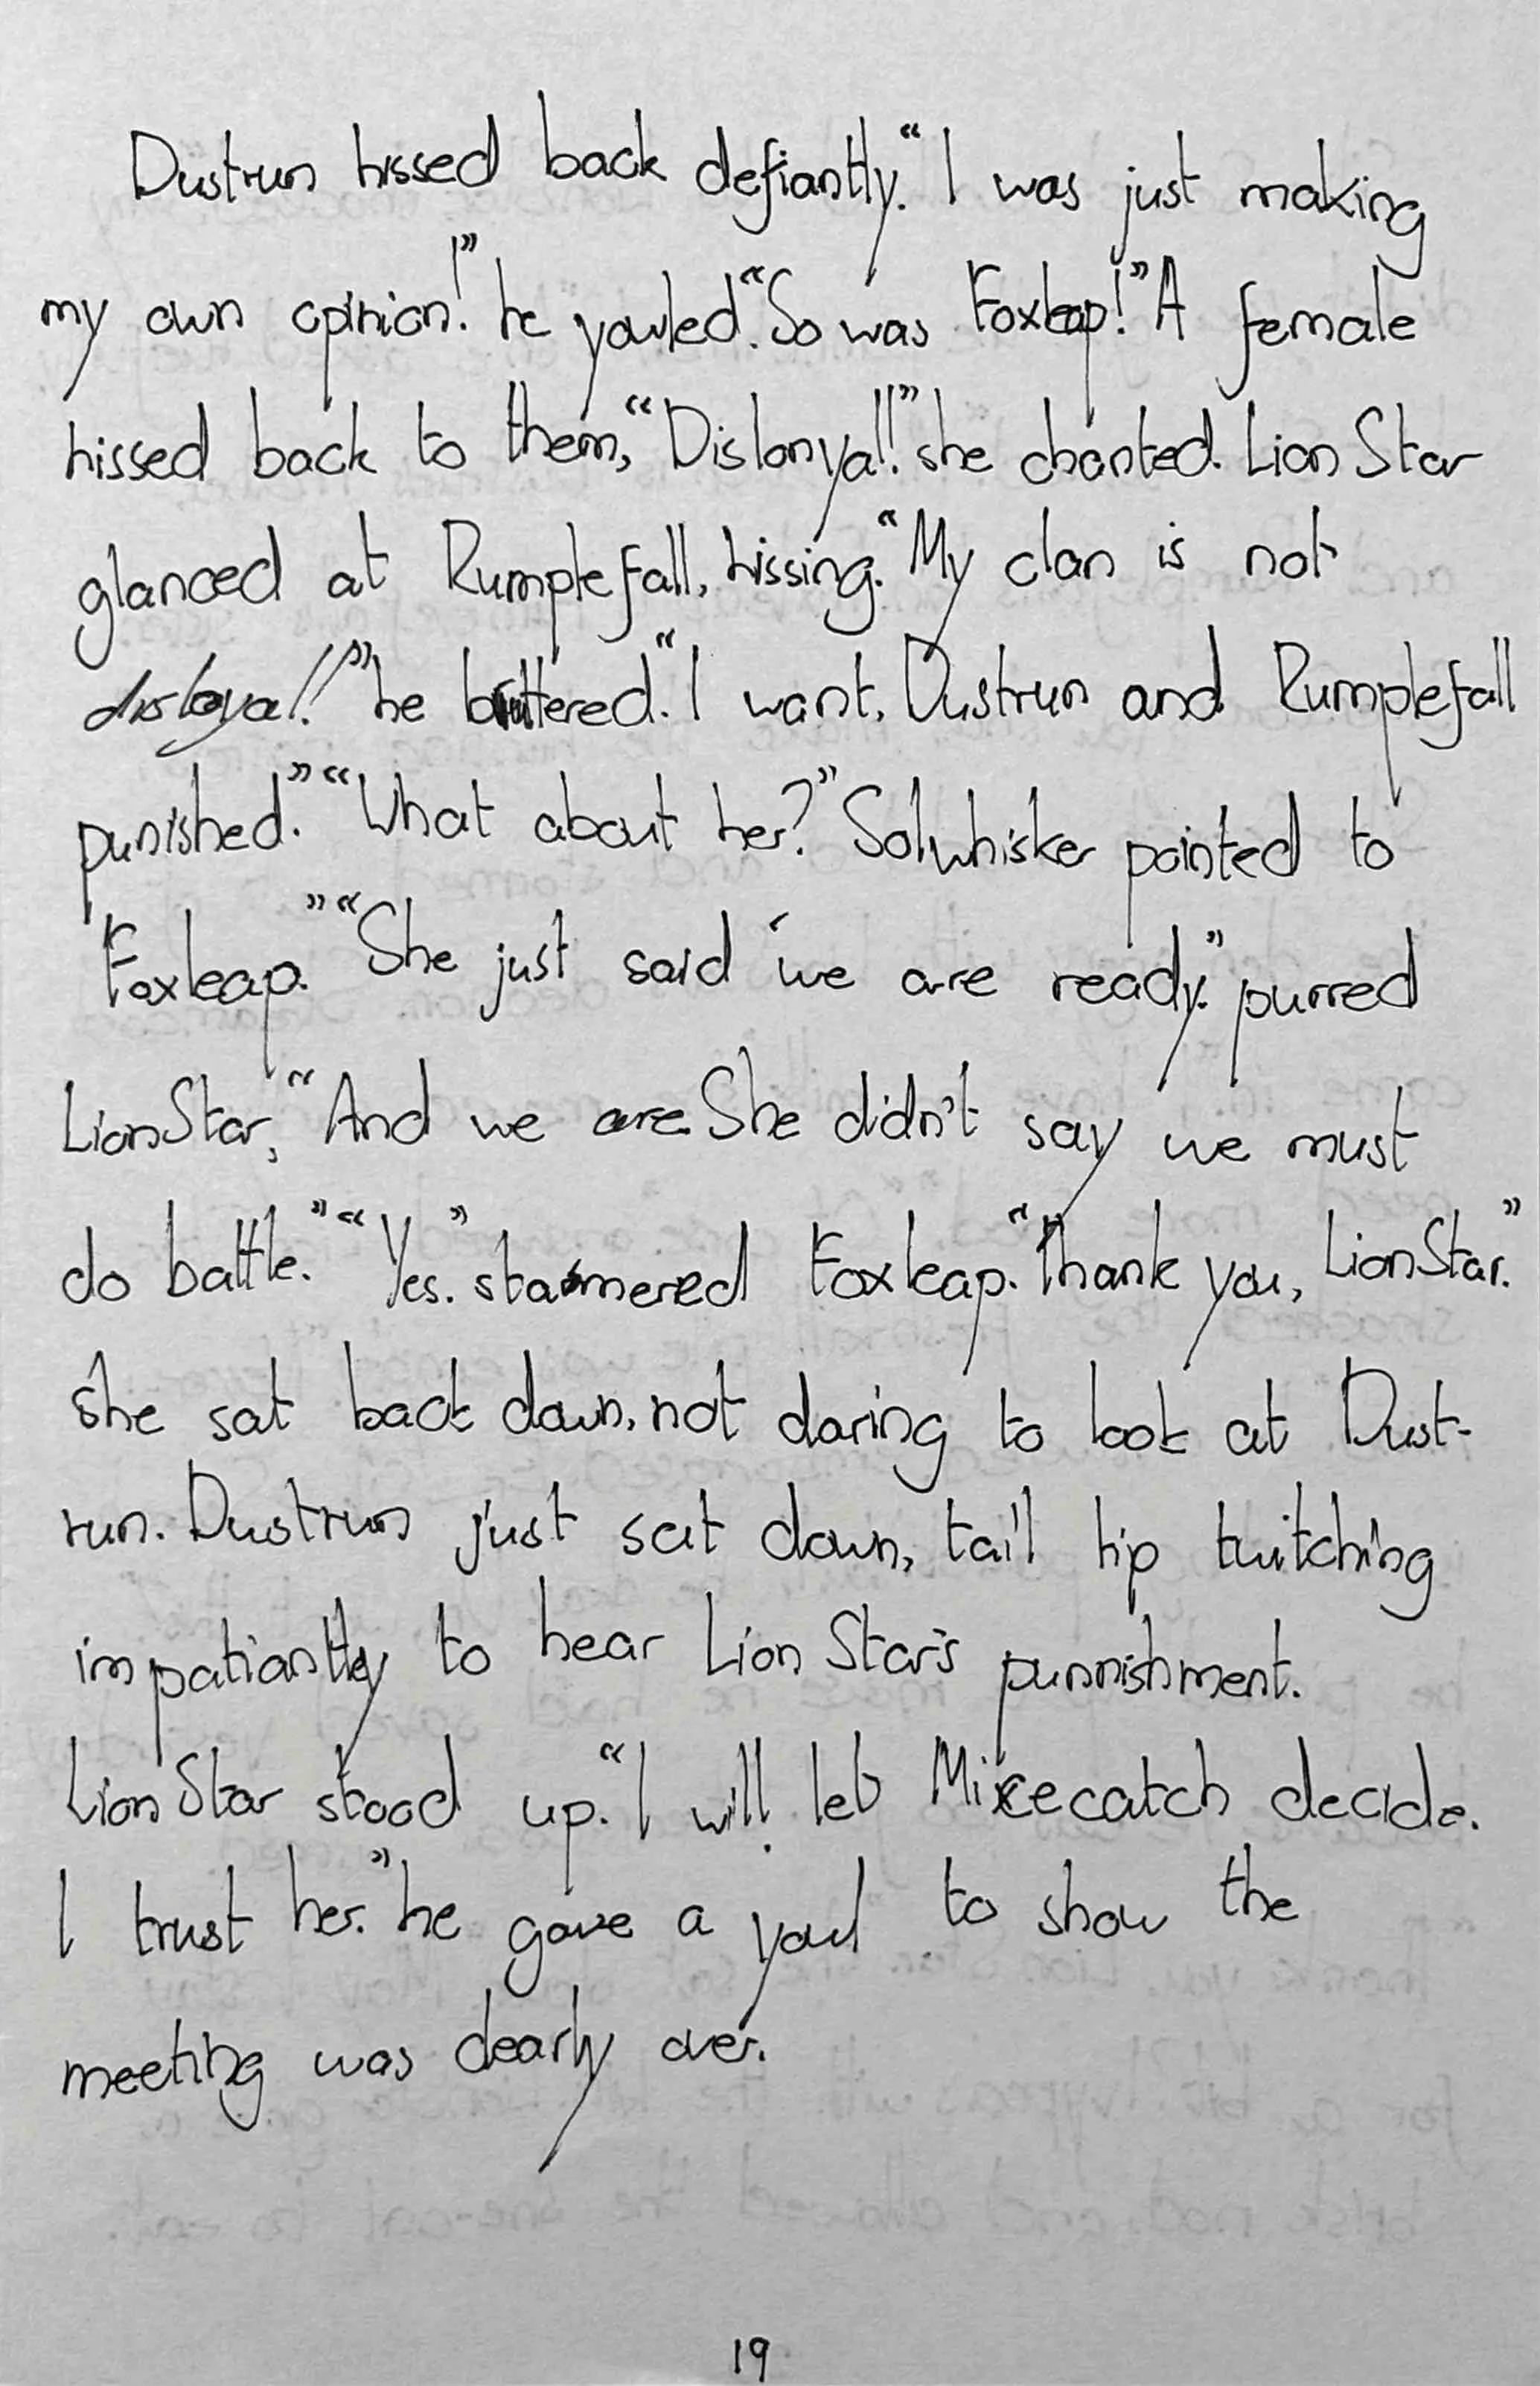 Dustrun hissed back defiantly. "I was just making
my own opinion!" he yowled. "So was Foxleap!" A female
hissed back to them, "Dislonyal!" she chanted. Lion Star
glanced at Rumplefall, hissing. "My clan is not
disloyal!" he buttered. "I want, Dustrun and Rumplefall
punished." "What about her?" Solwhisker pointed to
Foxleap." "She just said 'we are ready." purred
LionStar, "And we are. She didn't say we must
do battle." "Yes." stammered Foxleap. "Thank you, LionStar."
she sat back down, not daring to look at Dust-
run. Dustrun just sat down, tail tip twitching
impatiantly to hear Lion Star's punnishment.
Lion Star stood up. "I will let Micecatch decide.
I trust her." he gave a yowl to show the
meeting was clearly over.
19